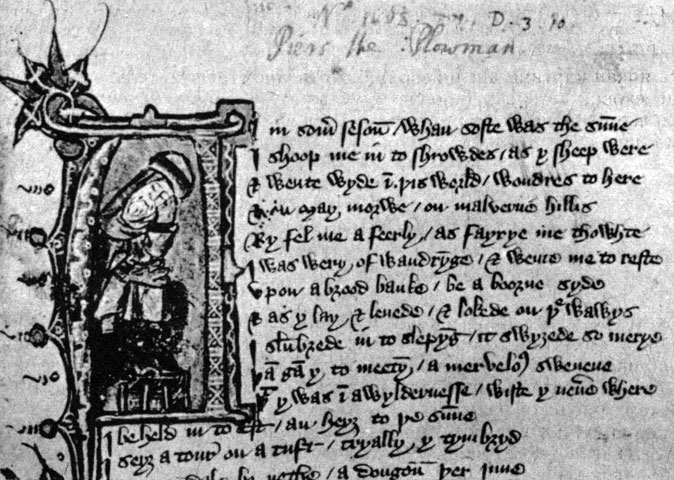 Nº 1668. D. 3. 10
Piers the Plowman
in som̄ sesoū / whan softe was the sūne
I shoop me in to shrowdes / as y sheep were
& wente wyde ī þis world / wondres to here
in May morwe / on malverne hillis
fel me a feerly / as fayrye me thowhte
I was wery of wandryge / & wente me to reste
vpon a brood banke / be a boorne syde
& as y lay & lenede / & lokede on watrys
I slūbrede in to slepyg / it swyzede so merye
gā y to meety / a mervelo9 swevene
y was ī a wyldernesse / wiste y nevē where
be held in to Est / an heyz to þe sūne
seyz a tour on a tuft / tryally y tymbryd
dale be nethe / a dongoū þer inne